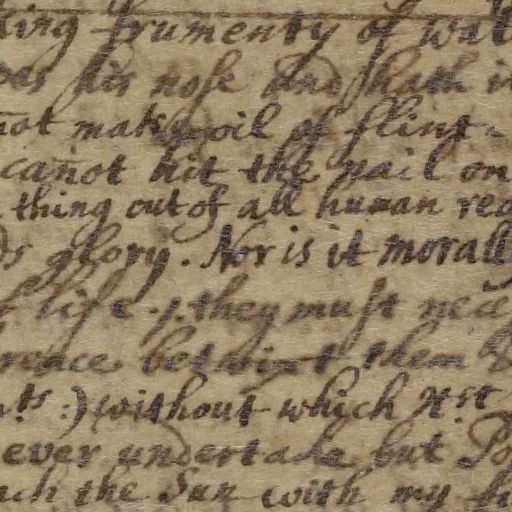 king frumenty of wat
ver his nose and hath i
not make oil of flint.
cañot hit the nail on
thing out of all human rea
ds glory. Nor is it morall
f life. /. they must nece
rence betwixt them &
ts :) without which
ever undertake but Po
uch the Sun with my fi